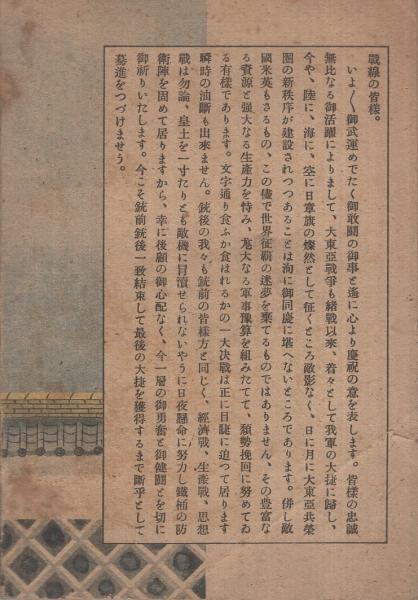 戰線の皆樣。
いよ〳〵御武運めでたく御敢鬪の御事と遙に心より慶祝の意を表します。皆樣の忠誠
無比なる御活躍によりまして、大東亞戰爭も緖戰以來、着々として我軍の大捷に歸し、
今や、陸に、海に、空に日章旗の燦然として征くところ敵影なく、日に月に大東亞共榮
圈の新秩序が建設されつつあることは洵に御同慶に堪へないところであります。併し敵
國米英もさるもの、この儘で世界征覇の迷夢を棄てるものではありません、その豊富な
る資源と强大なる生産力を恃み、尨大なる軍事豫算を組みたてて、頽勢挽回に努めてゐ
る有樣であります。文字通り食ふか食はれるかの一大決戰は正に目睫に迫つて居ります
瞬時の油斷も出來ません。銃後の我々も銃前の皆樣方と同じく、經濟戰、生產戰、思想
戰は勿論、皇土を一寸たりとも敵機に冒瀆せられないやうに日夜懸命に努力し鐵桶の防
衛陣を固めて居りますから、幸に後顧の御心配なく、今一層の御勇奮と御健鬪とを切に
御祈りいたします。今こそ銃前銃後一致結束して最後の大捷を獲得するまで斷乎として
驀進をつづけませう。